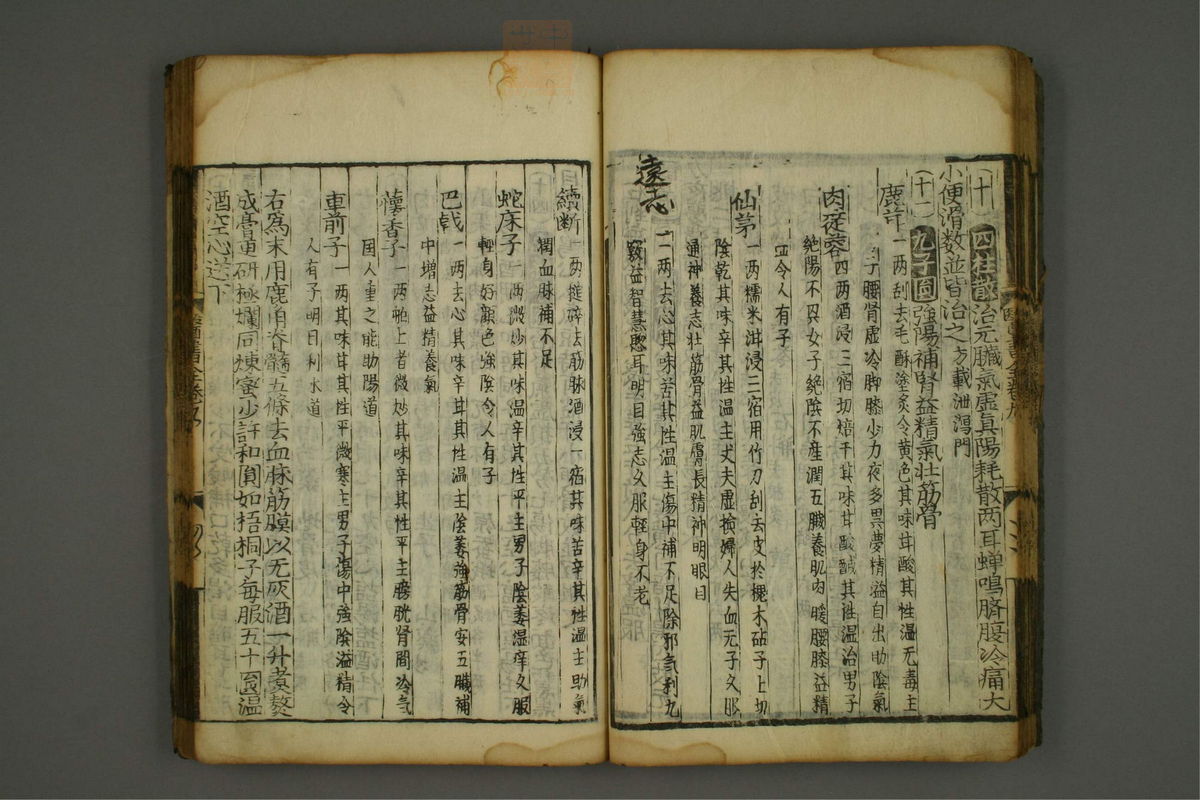 (十)四柱散治元臟氣虛真陽耗散两耳蝉鳴臍腹冷痛大
小便滑数並皆治之方載泄瀉門
(十一)九子圎強陽補腎益精氣壯筋骨
鹿茸一两刮去毛酥塗炙令黄色其味甘酸其性温无毒主
子腰腎虚冷脚膝少力夜多異夢精益自出助陰氣
肉苁蓉四两酒浸三宿切焙干其味甘酸鹹其性温治男子
絶陽不及女子絶陰不産潤五臓養肌肉暖腰膝益精
並令人有子
仙茅一两糯米泔浸三宿用竹刀刮去皮於槐木砧子上切
陰乾其味辛其性温主丈夫虚捡婦人失血无子久服
通神養志壮筋骨益肌膚長精神明眼目
遠志二两去心其味苦其性温主傷中補不足除邪氣利九
竅益智慧聡耳明目強志久服輕身不老
續断一两搥碎去筋脉酒浸一宿其味苦辛其性温主助氣
潤血脉補不足
蛇床子一两微炒其味温辛其性平主男子陰萎湿痒久服
輕身好顔色強陰令人有子
巴戟一两去心其味辛甘其性温主陰萎強筋骨安五臓補
中增志益精養氣
蘹香子一两舶上者微炒其味辛其性平主膀胱肾間冷氣
囯人重之能助陽道
車前子一两其味甘其性平微寒主男子傷中強陰益精令
人有子明目利水道
右爲末用鹿角脊髓五條去血脉筋膜以无灰酒一升煮熬
成膏更研極爛同煉蜜少許和圎如梧桐子每服五十圎温
酒空心送下